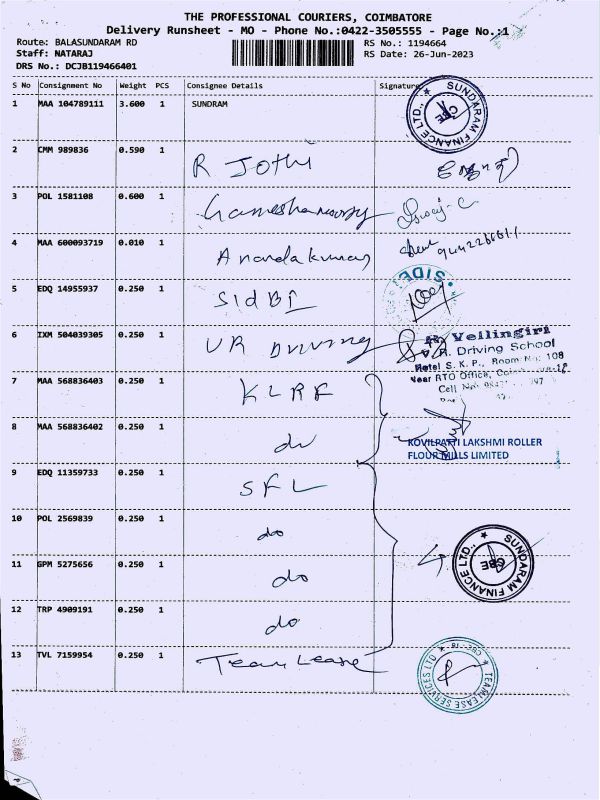 THE PROFESSIONAL COURIERS, COIMBATORE
Delivery Runsheet - MO - Phone No.:0422-3505555 - Page No.:1
Route: BALASUNDARAM RD
RS No.: 1194664
Staff: NATARAJ
RS Date: 26-Jun-2023
DRS No.: DCJB119466401
S No Consignment No Weight PCS Consignee Details Signature
1 MAA 104789111 3.600 1 SUNDRAM
SUNDARAM FINANCE LTD., CBE
2 CMM 989836 0.590 1 R Jothi
3 POL 1581108 0.600 1
4 MAA 600093719 0.010 1 Anandakumar
5 EDQ 14955937 0.250 1 SIdBI
SIDBI
6 IXM 504039305 0.250 1 VR Driving
Vellingiri
V.R. Driving School
Hotel S. K. P., Room No: 108
Near RTO Office,
Cell No:
7 MAA 568836403 0.250 1 KLRF
8 MAA 568836402 0.250 1 do
KOVILPATTI LAKSHMI ROLLER
FLOUR MILLS LIMITED
9 EDQ 11359733 0.250 1 SFL
10 POL 2569839 0.250 1 do
11 GPM 5275656 0.250 1 do
SUNDARAM FINANCE LTD., CBE
12 TRP 4909191 0.250 1 do
13 TVL 7159954 0.250 1 Team Lease
TEAMLEASE SERVICES LTD